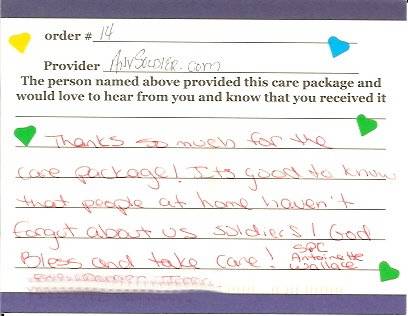 order # 14
Provider AnySoldier.com
The person named above provided this care package and
would love to hear from you and know that you received it
Thanks so much for the
care package! Its good to know
that people at home haven't
forgot about us soldiers! God
Bless and take care! SPC
Antoinette
Wallace